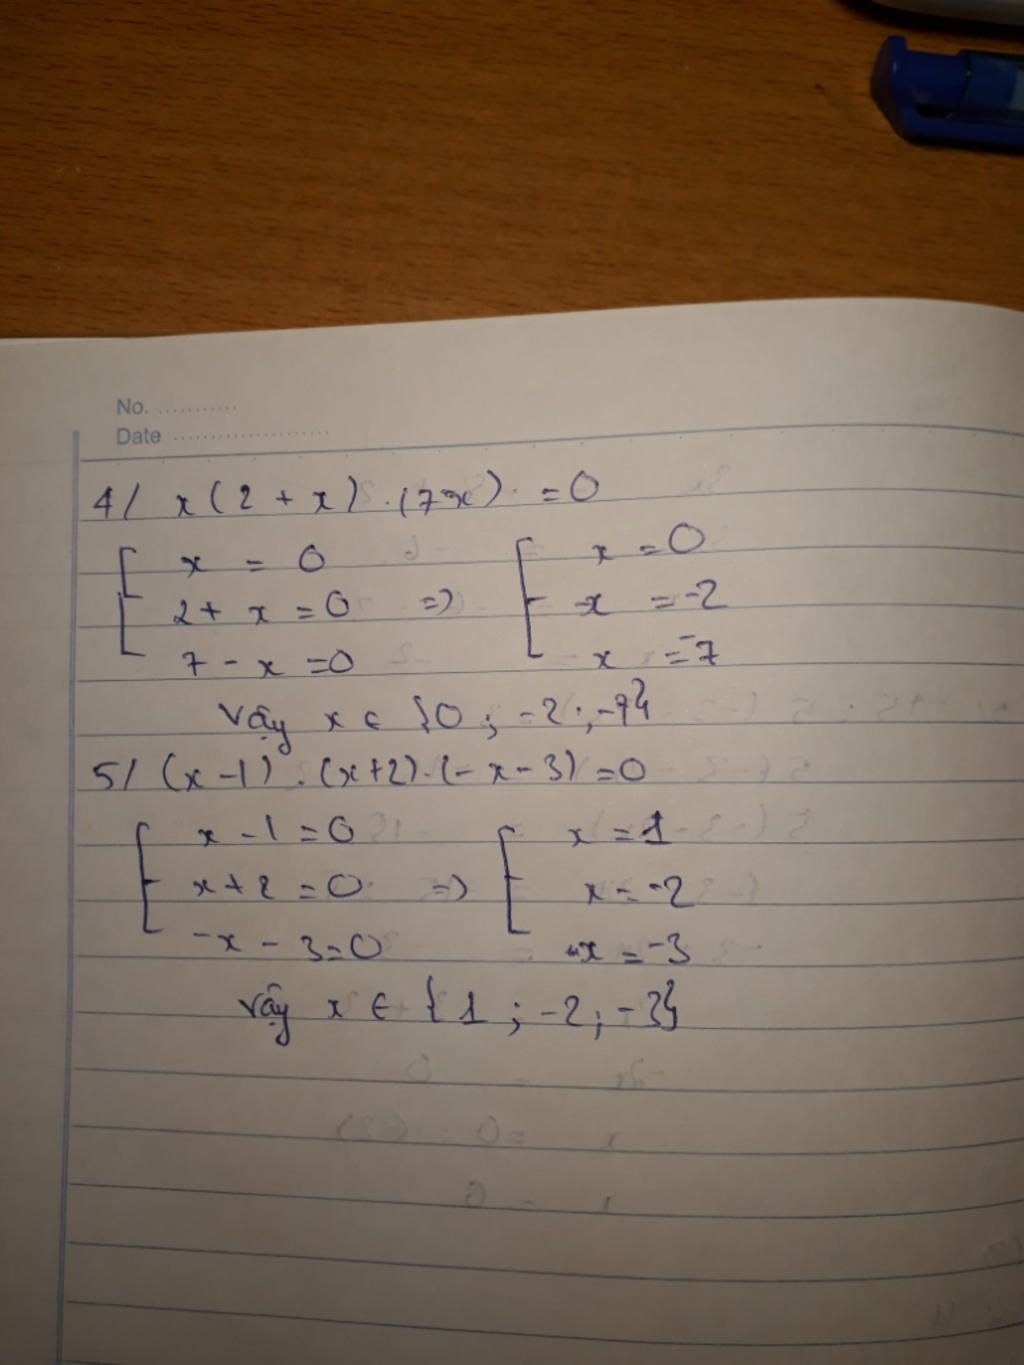 No. ...........
Date .....................
4/ x(2 + x) . (7-x) = 0
x = 0 x = 0
2 + x = 0 => x = -2
7 - x = 0 x = -7
Vậy x ∈ {0 ; -2 ; -7}
5/ (x - 1) . (x+2) . (- x - 3) = 0
x - 1 = 0 x = 1
x + 2 = 0 => x = -2
-x - 3 = 0 x = -3
Vậy x ∈ {1 ; -2 ; -3}